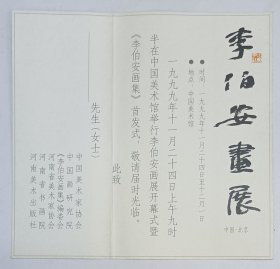 李伯安畫展
中国·北京
●时间：一九九九年十一月二十四日至十二月一日
●地点：中国美术馆
一九九九年十一月二十四日上午九时
半在中国美术馆举行李伯安画展开幕式暨
《李伯安画集》首发式，敬请届时光临。
此致
先生（女士）
中国美术家协会
中国画研究院
《李伯安画集》编委会
河南省美术家协会
河南省书画院
河南美术出版社